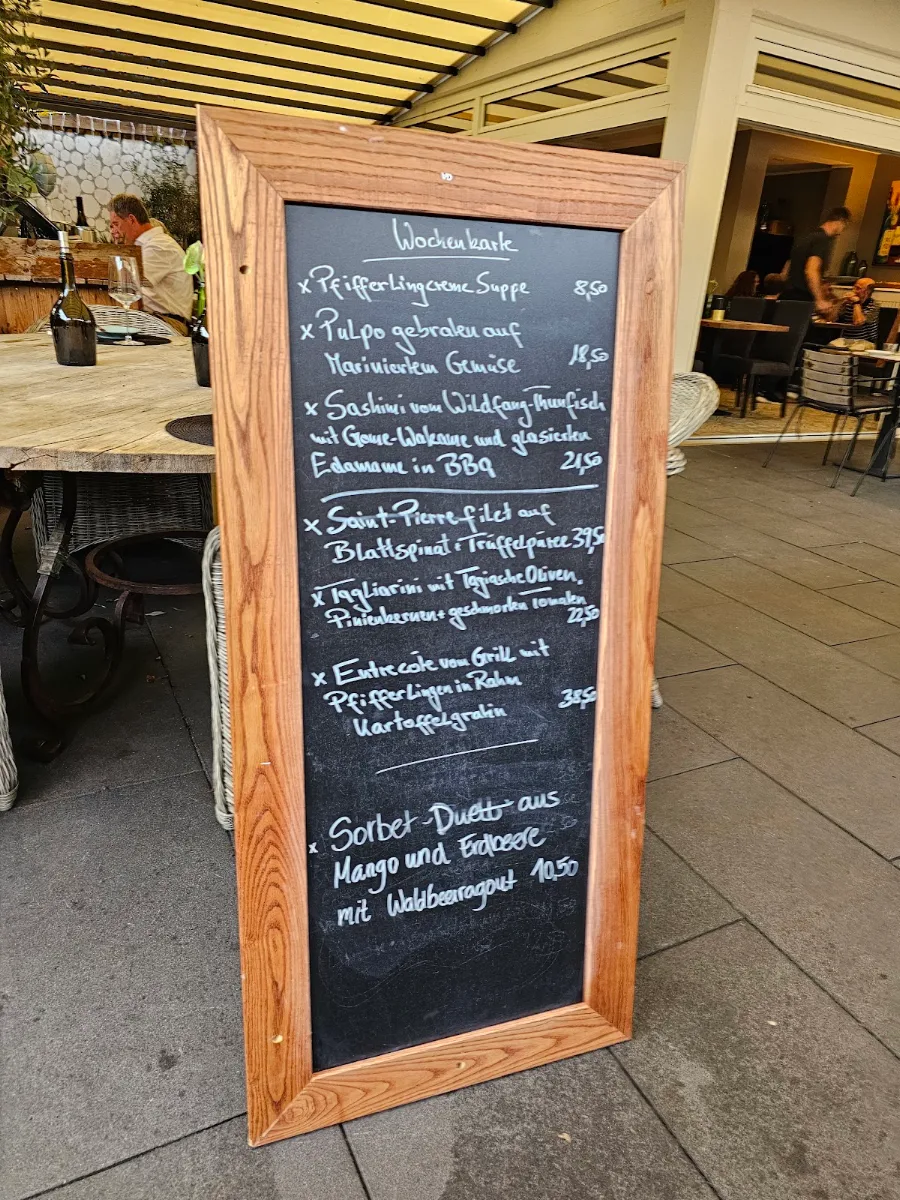 VD
Wochenkarte
x Pfifferlingcreme Suppe 8,50
x Pulpo gebraten auf
Mariniertem Gemüse 18,50
x Sashimi vom Wildfang-Thunfisch
mit Gome-Wakame und glasierten
Edamame in BBQ 21,50
x Saint-Pierre-filet auf
Blattspinat + Trüffelpüree 39,50
x Tagliarini mit Tagiasche Oliven,
Pinienkernen + geschmorten Tomaten
22,50
x Entrecôte vom Grill mit
Pfifferlingen in Rahm
Kartoffelgratin 38,50
x Sorbet-Duett aus
Mango und Erdbeere
mit Waldbeeragout 10,50